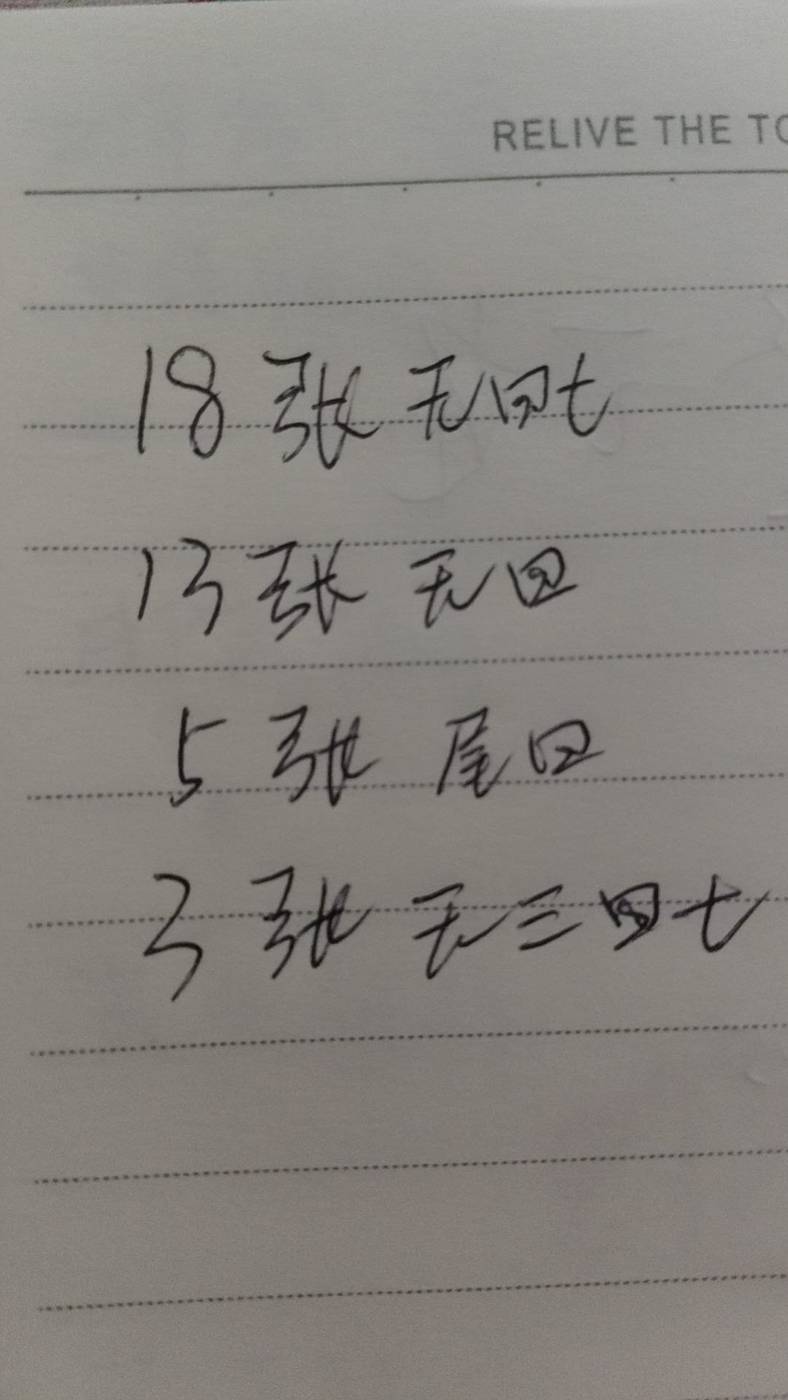 RELIVE THE TO
18张无四七
13张无四
5张尾四
3张无三四七